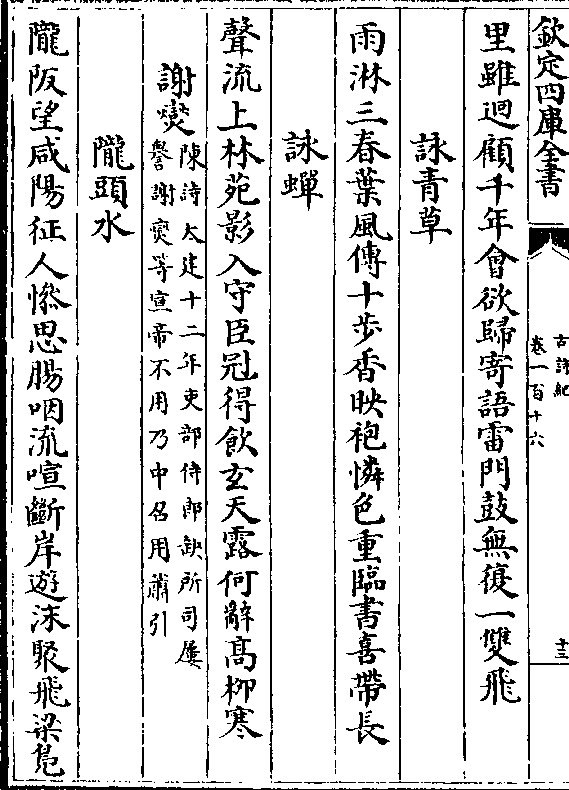 欽定四庫全書
古詩紀
卷一百十六
十三
里雖迥顧千年會欲歸寄語雷門鼓無復一雙飛
詠青草
雨淋三春葉風傳十步香映袍憐色重臨書喜帶長
詠蟬
聲流上林苑影入守臣冠得飲玄天露何辭髙柳寒
謝爕
陳詩太建十二年吏部侍郎缺所司屢
譽謝爕等宣帝不用乃中召用蕭引
隴頭水
隴阪望咸陽征人慘思腸咽流喧斷岸遊沫聚飛梁鳬